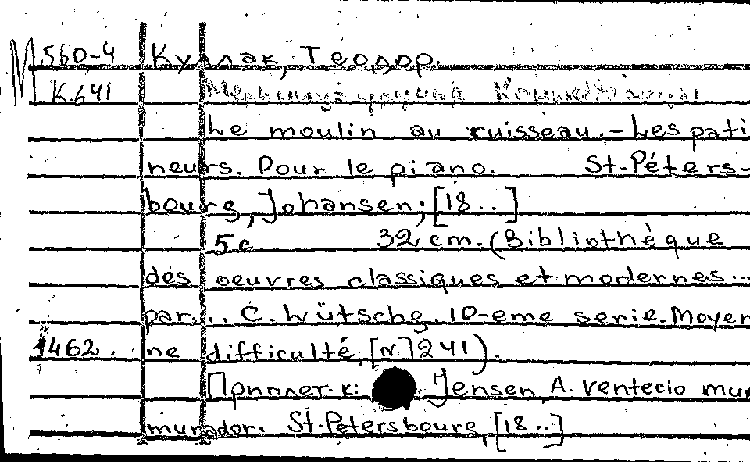 М 560-4 Куллак, Теодор.
К.641
Le moulin au ruisseau.-Les pati
neurs. Pour le piano. St-Péters-
bourg, Johansen; [18..]
5с 32 cm. (Bibliothèque
des oeuvres classiques et modernes...
par... C. Wütsche. 10-eme serie. Moyen
1462. ne difficulté, [N] 241).
Приплет. к: Jensen, A. Ventecio mur
murador. St.-Petersbourg, [18..]